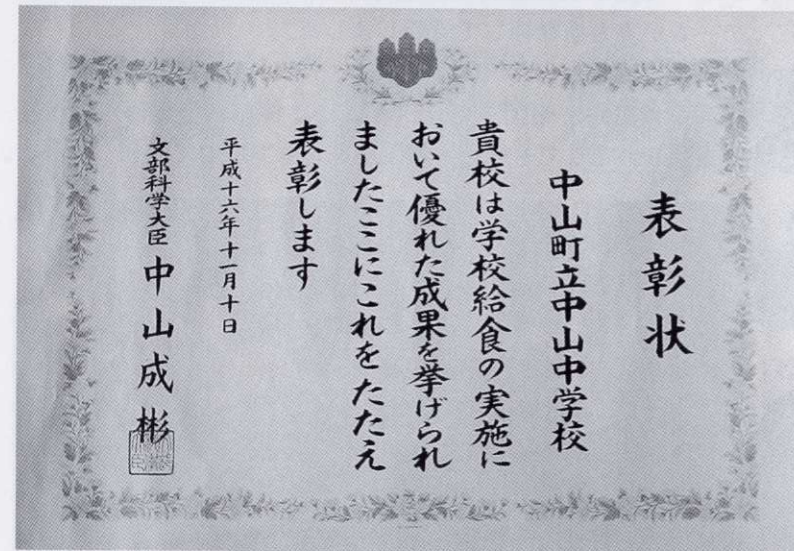 表彰状
中山町立中山中学校
貴校は学校給食の実施に
おいて優れた成果を挙げられ
ましたここにこれをたたえ
表彰します
平成十六年十一月十日
文部科学大臣 中山成彬